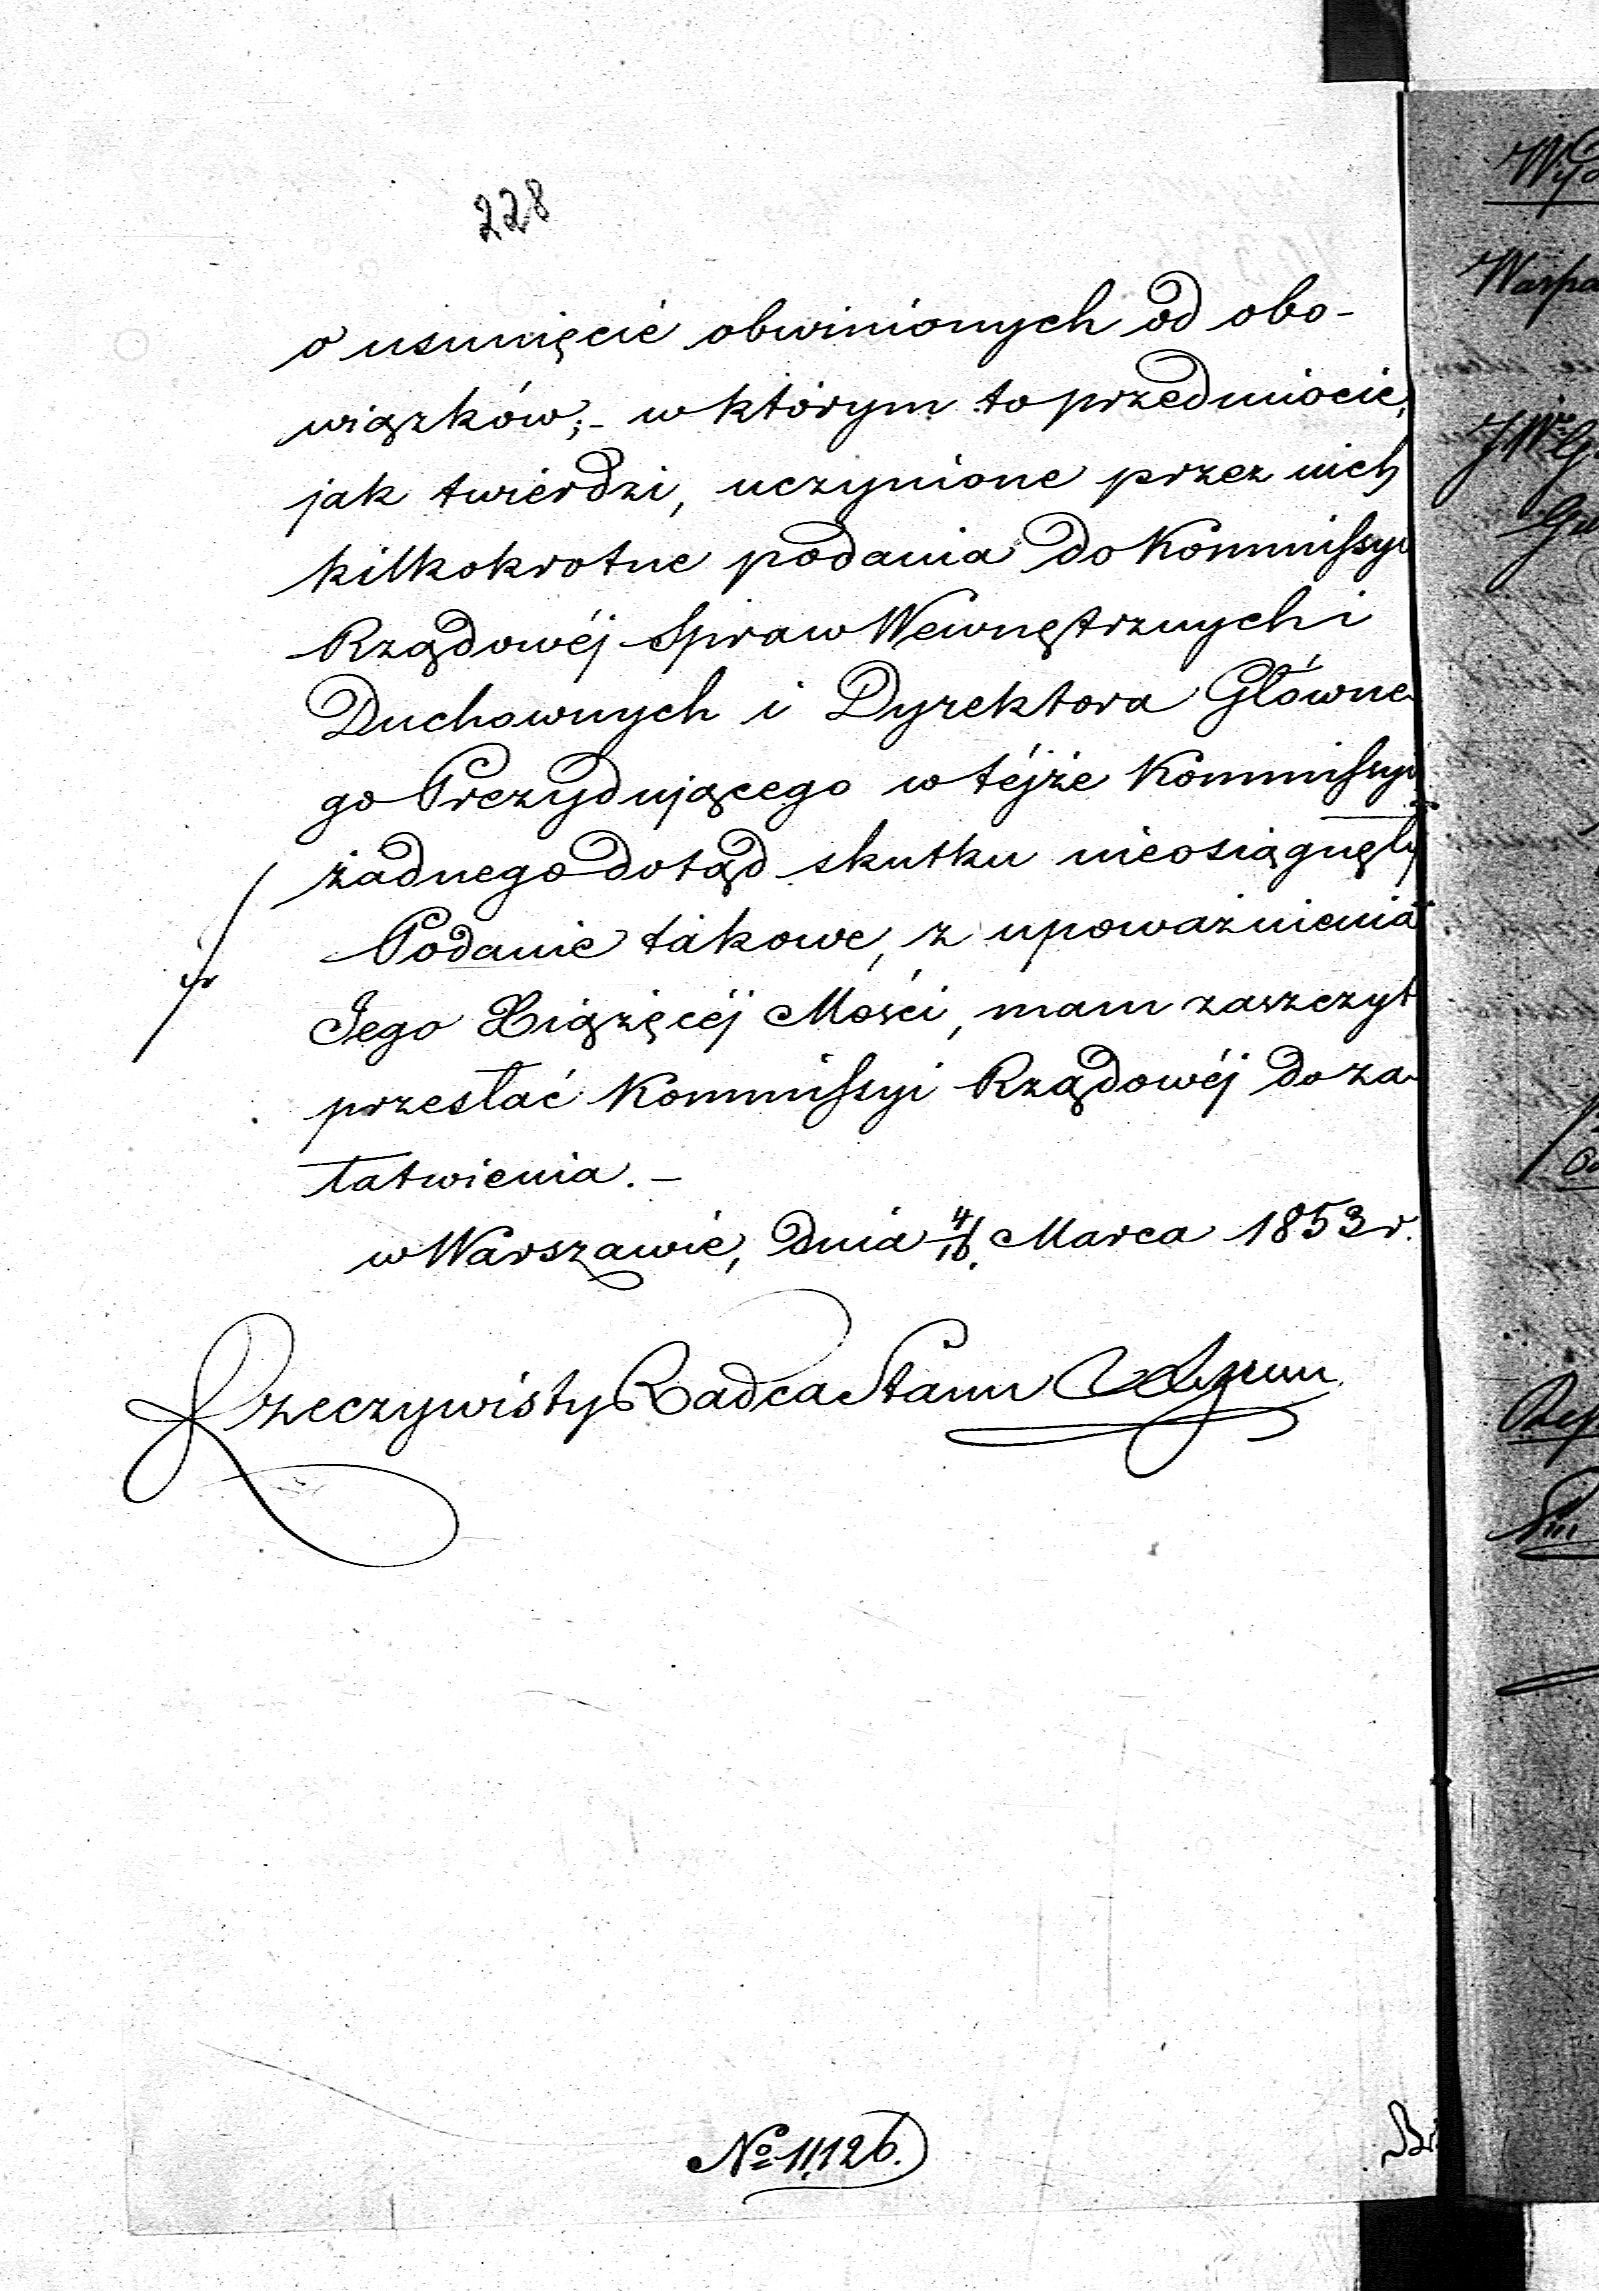 228
o usunięcie obwinionych od obo-
wiązków;- w którym to przedmiocie,
jak twierdzi, uczynione przez nich
kilkokrotne podania do Kommissyi
Rządowéj Spraw Wewnętrznych i
Duchownych i Dyrektora Główne-
go Prezydującego w téjże Kommissyi
żadnego dotąd skutku nieosiągnęły
Podanie takowe, z upoważnienia
Jego Xiążęcéj Mości, mam zaszczyt
przesłać Kommissyi Rządowéj do za-
łatwienia. -
w Warszawie, dnia 4/16. Marca 1853 r.
Rzeczywisty Radca Stanu
№ 11,126.